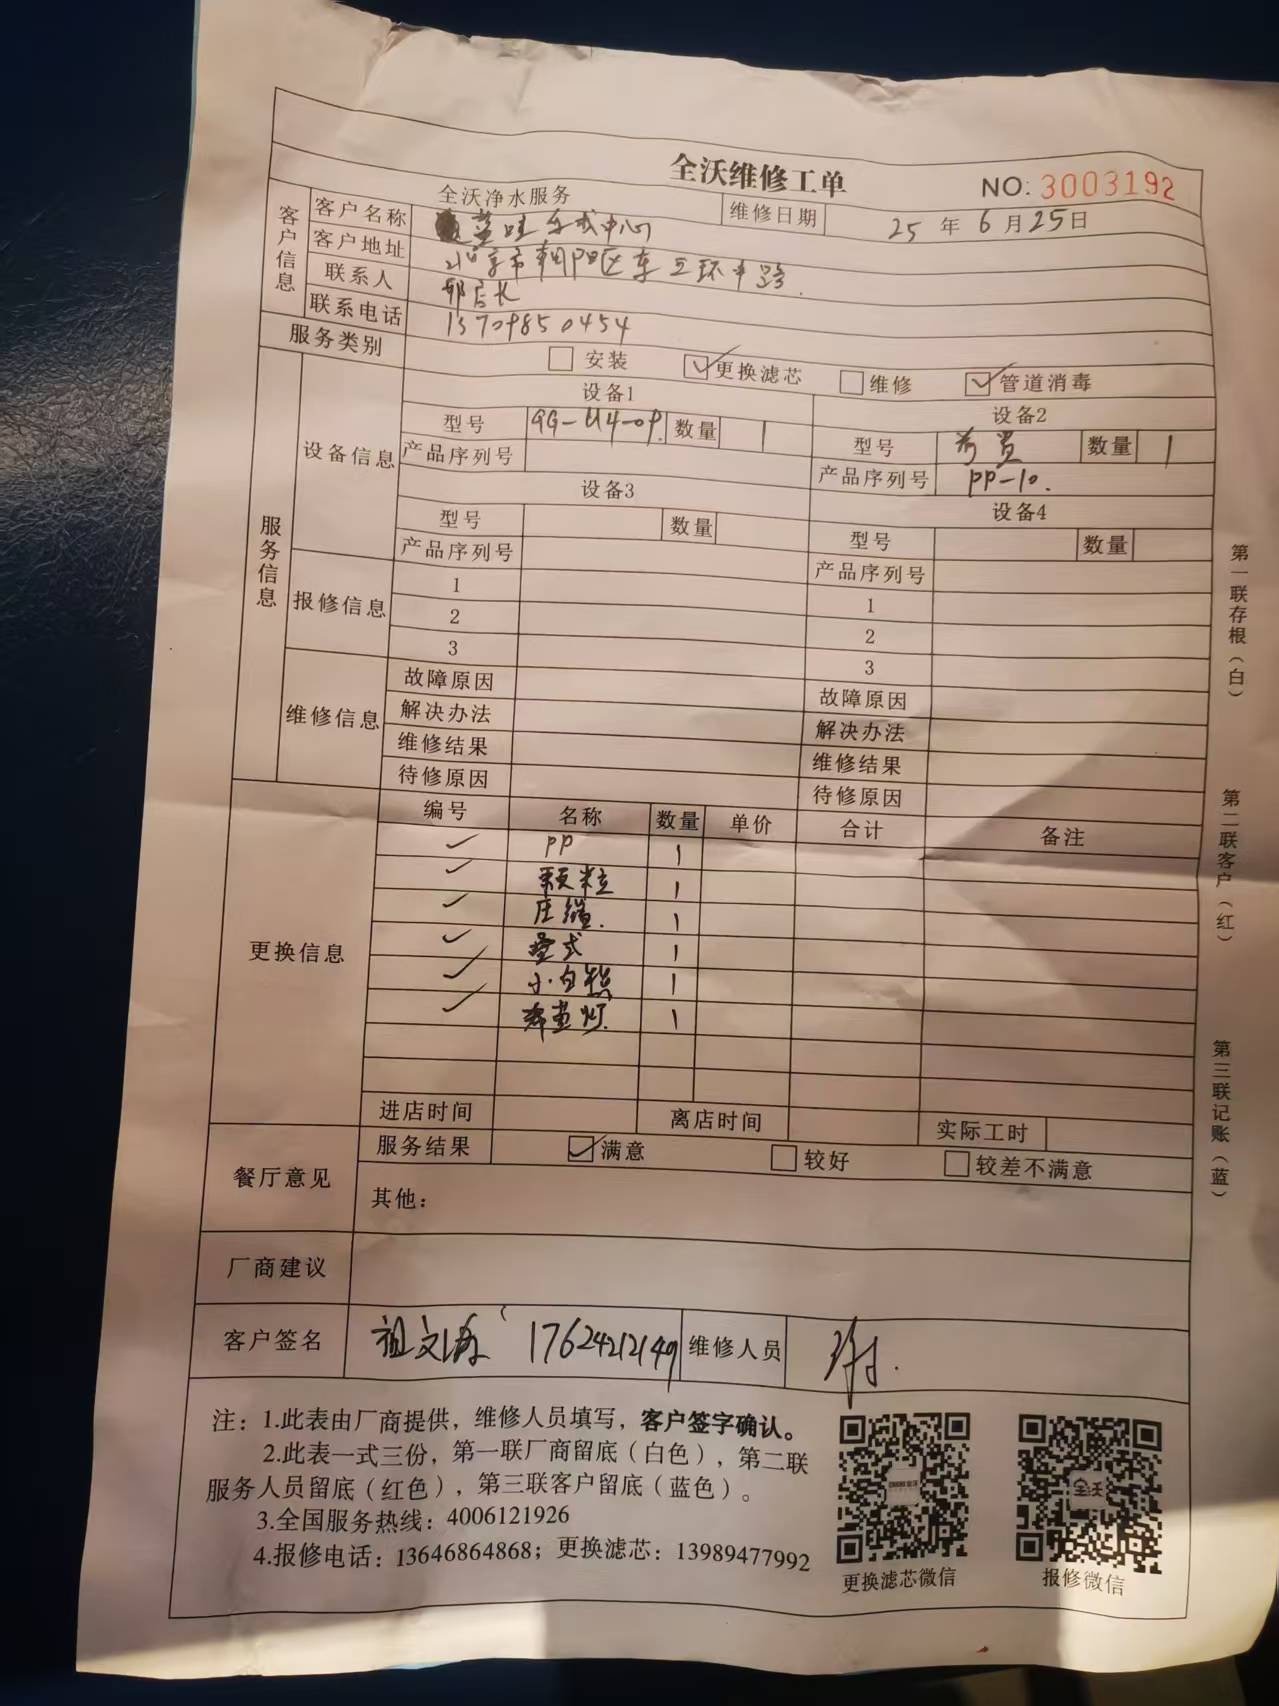 全沃维修工单
NO: 3003192
全沃净水服务
维修日期 25 年 6 月 25 日
客户信息
客户名称
中心
客户地址 北京市朝阳区东三环中路
联系人 郭店长
联系电话 13709850454
服务类别 安装 更换滤芯 维修 管道消毒
服务信息
设备信息
设备1 设备2
型号 数量 1 型号 数量 1
产品序列号 产品序列号 PP-10.
设备3 设备4
型号 数量 型号 数量
产品序列号 产品序列号
报修信息
1 1
2 2
3 3
维修信息
故障原因 故障原因
解决办法 解决办法
维修结果 维修结果
待修原因 待修原因
更换信息
编号 名称 数量 单价 合计 备注
PP 1
颗粒 1
压缩. 1
1
小白 1
灯 1
进店时间 离店时间 实际工时
餐厅意见
服务结果 满意 较好 较差不满意
其他：
厂商建议
客户签名 祖文 17624212149 维修人员
注：1.此表由厂商提供，维修人员填写，客户签字确认。
2.此表一式三份，第一联厂商留底（白色），第二联
服务人员留底（红色），第三联客户留底（蓝色）。
3.全国服务热线：4006121926
4.报修电话：13646864868；更换滤芯：13989477992
更换滤芯微信
报修微信
第一联存根（白）
第二联客户（红）
第三联记账（蓝）